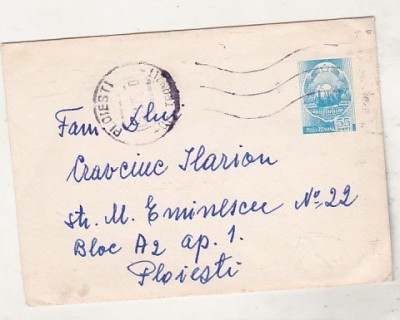 PLOIESTI
POSTA ROMANA 55
Fam. Dlui
Cravciuc Ilarion
str. M. Eminescu No 22
Bloc A2 ap. 1.
Ploiesti